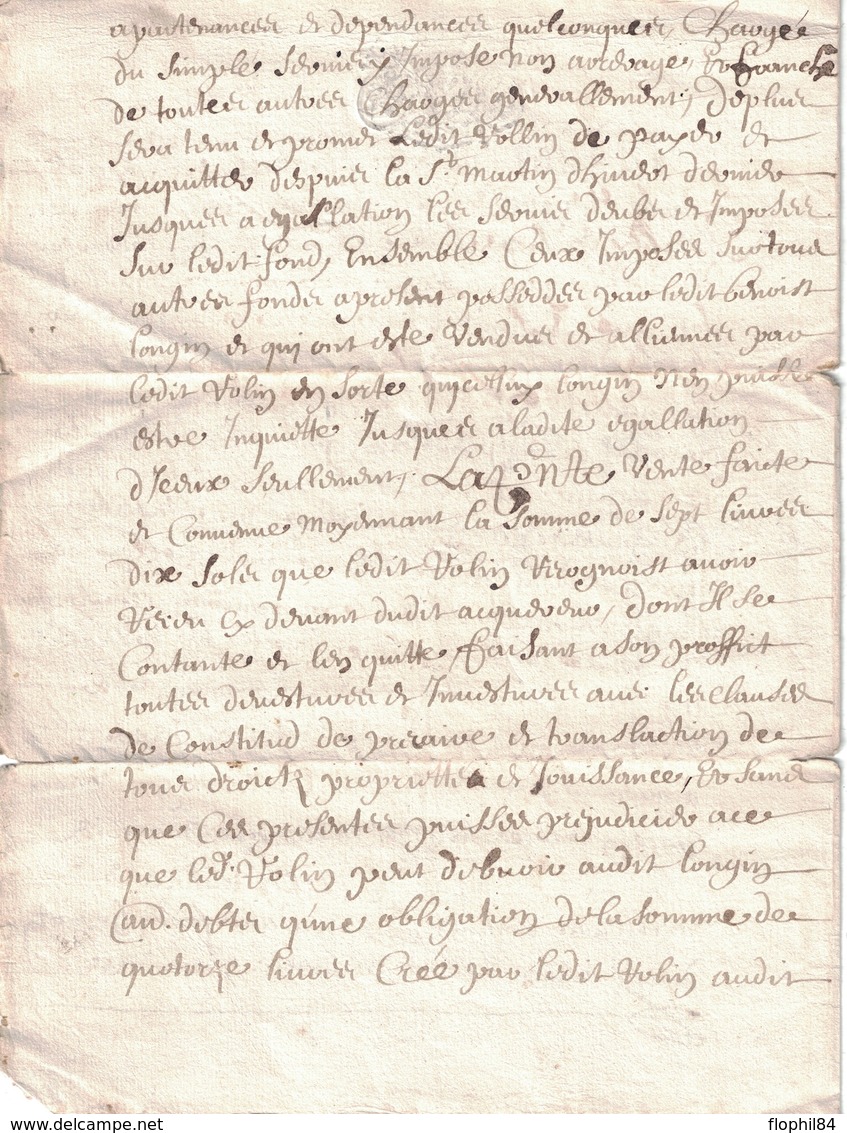 apartenances et dependances quelconques, Chargé
du simple servis Imposé non arderage, et franch
de toutes autres Charges generallement, deplus
sera tenu et promet Ledit Vollin de payer et
acquitter despuis la St. Martin dhivert dernier
Jusques a egallation les servis deubs et Imposés
sur ledit fond, Ensemble Ceux Imposés sur tous
autres fonds apresent posseddés par ledit benoist
longin et qui ont esté Vendus et alliennés par
ledit Volin en sorte longin nen puisse
estre Inquietté Jusques aladite egallation
d'Iceux seullement, La pnte Vente faicte
et Convenue moyennant la somme de sept livres
dix sols que ledit Volin Recognoist avoir
Receu cy devant dudit acquereur, dont Il se
Contante et len quitte, faisant a son proffict
toutes devestures et Investures avec les Clauses
de Constitud de preraire et translaction de
tous droictz proprietté et Jouissance, Et sans
que Ces presentes puisses prejudicier ace
que led. Volin peut debvoir audit longin
debtes qune obligation de la somme de
quatorze livres Créé par ledit Volin audit
flophil84